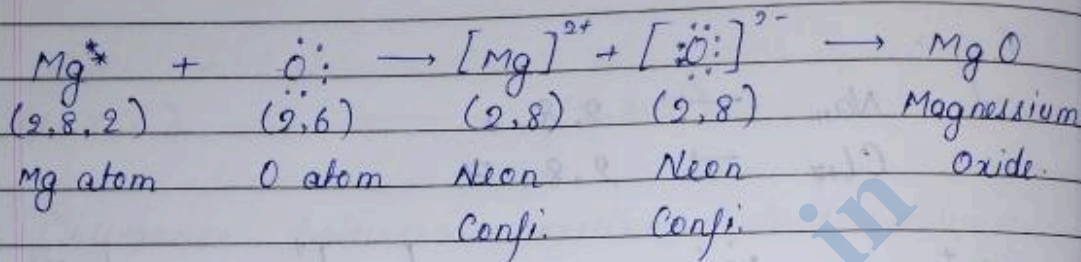 Mg** + Ö: → [Mg]²⁺ + [:Ö:]²⁻ → MgO
(2,8,2) (2,6) (2,8) (2,8) Magnessium
Mg atom O atom Neon Neon Oxide.
Confi. Confi.
in